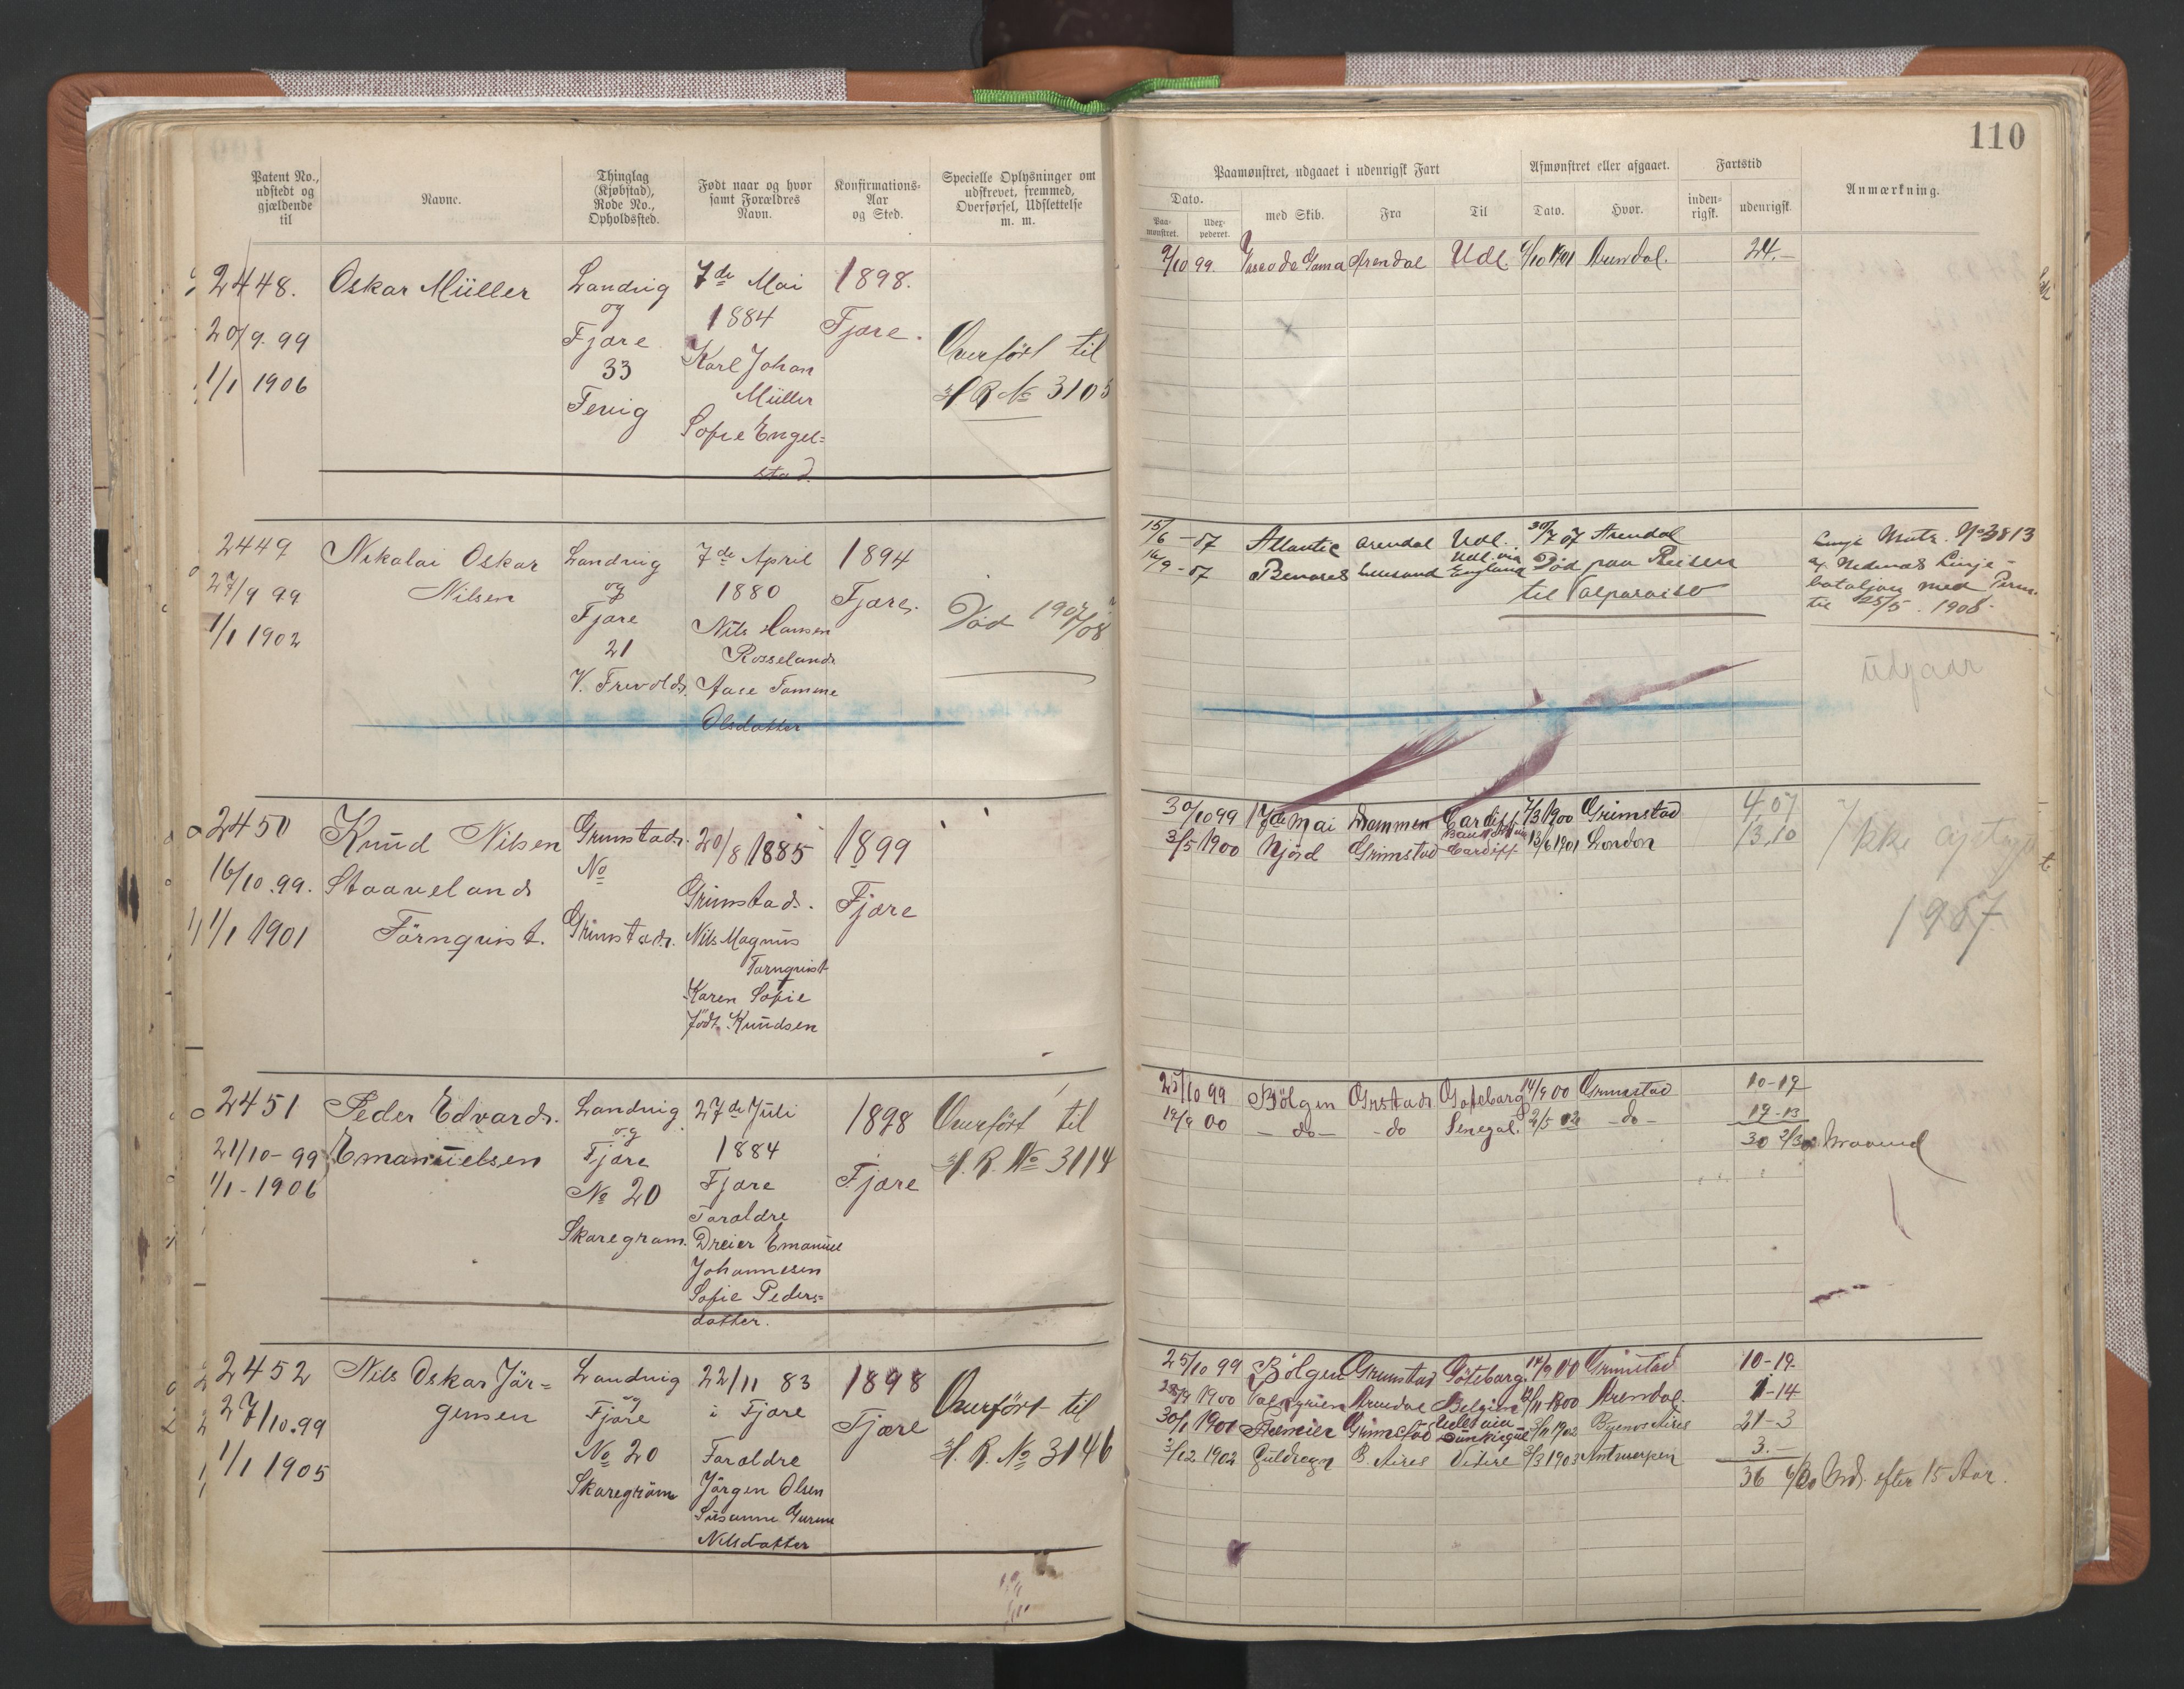 110
Patent No.,
udstedt og
gjældende
til
Navne.
Thinglag
(Kjøbstad),
Rode No.,
Opholdssted.
Født naar og hvor
samt Forældres
Navn.
Konfirmations-
Aar
og Sted.
Specielle Oplysninger om
udskrevet, fremmed,
Overførsel, Udslettelse
m. m.
Paamønstret, udgaaet i udenrigsk Fart
Dato.
Paa-
mønstret.
Udex-
pederet.
med Skib.
Fra
Til
Afmønstret eller afgaaet.
Dato.
Hvor.
Fartstid
inden-
rigsk.
udenrigsk.
Anmærkning.
2448.
20/9. 99
1/1 1906
Oskar Müller
Landvig
og
Fjære
33
Fevig
7de Mai
1884
Karl Johan
Müller
Sofie Engel=
stad.
1898.
Fjære.
Overført til
H R No 3105
9/10 99. Vasco de Gama Arendal Udl 9/10 1901 Arendal. 24.-
2449
27/9 99
1/1 1902
Nikolai Oskar
Nilsen
Landvig
og
Fjære
21
V. Frivolds.
7de April
1880
Nils Hansen
Rosseland
Aase Tomine
Olsdatter
1894
Fjære.
Død 1907
15/6 - 07 Atlantic Arendal Udl. 30/7 07 Arendal
16/9 - 07 Benares Lillesand Udl. via England Død paa Reisen
til Valparaiso
Linje Mutr. No 3813
af Nedenæs Linje-
bataljon med Perm.
til 25/5. 1908
Udgaar
2450
16/10. 99.
1/1 1901
Knud Nilsen
Staaveland
Törnquist.
Grimstad.
No
Grimstad.
20/8 1885
Grimstad.
Nils Magnus
Tornquist
Karen Sofie
født Knudsen
1899
Fjære
30/10 99 17de Mai Drammen Cardiff 7/3 1900 Grimstad 4,07
3/5 1900 Njørd Grimstad Cardiff 13/6 1901 London 13,10
Ikke
1907
2451
21/10 - 99
1/1 - 1906
Peder Edvard
Emanuelsen
Landvig
og
Fjære
No 20
Skaregrøm.
27de Juli
1884
Fjære
Foraldre
Dreier Emanuel
Johannesen
Sofie Peders=
datter.
1898
Fjære
Overført til
H. R. No 3114
25/10 99 Bölgen Grstad Goteborg 14/9 00 Grimstad 10-19
19/9 00 - do - - do Senegal. 2/5 02 - do - 19-13
30 2/30 Maaned
2452
27/10. 99
1/1 1905
Nils Oskar Jör=
gensen
Landvig
og
Fjære
No 20
Skaregrøm
22/11 83
i Fjære
Foraldre
Jörgen Olsen
Susanne Gurine
Nilsdatter
1898
Fjære
Overført til
H. R. No 3146
25/10 99 Bölgen Grimstad Göteborg. 14/9 00 Grimstad 10-19.
28/9 1900 Valkyrien Arendal Belgien 12/11 1900 Arendal. 1-14
30/1 1901 Premier Grimstad Udl via Dünkirque 3/11 1902 Buenos Aires 21-3
3/12 1902 Guldregn B. Aires 3/3 1903 Antwerpen 3.-
36 6/30 Md. efter 15 Aar.